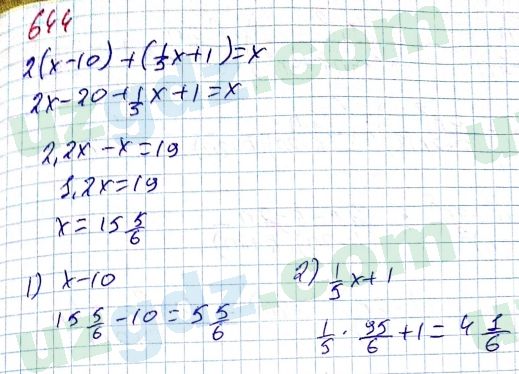 644
2(x-10)+(1/5x+1)=x
2x-20+1/5x+1=x
2,2x-x=19
1,2x=19
x=15 5/6
1) x-10
15 5/6-10=5 5/6
2) 1/5x+1
1/5·95/6+1=4 1/6
uzgdz.com